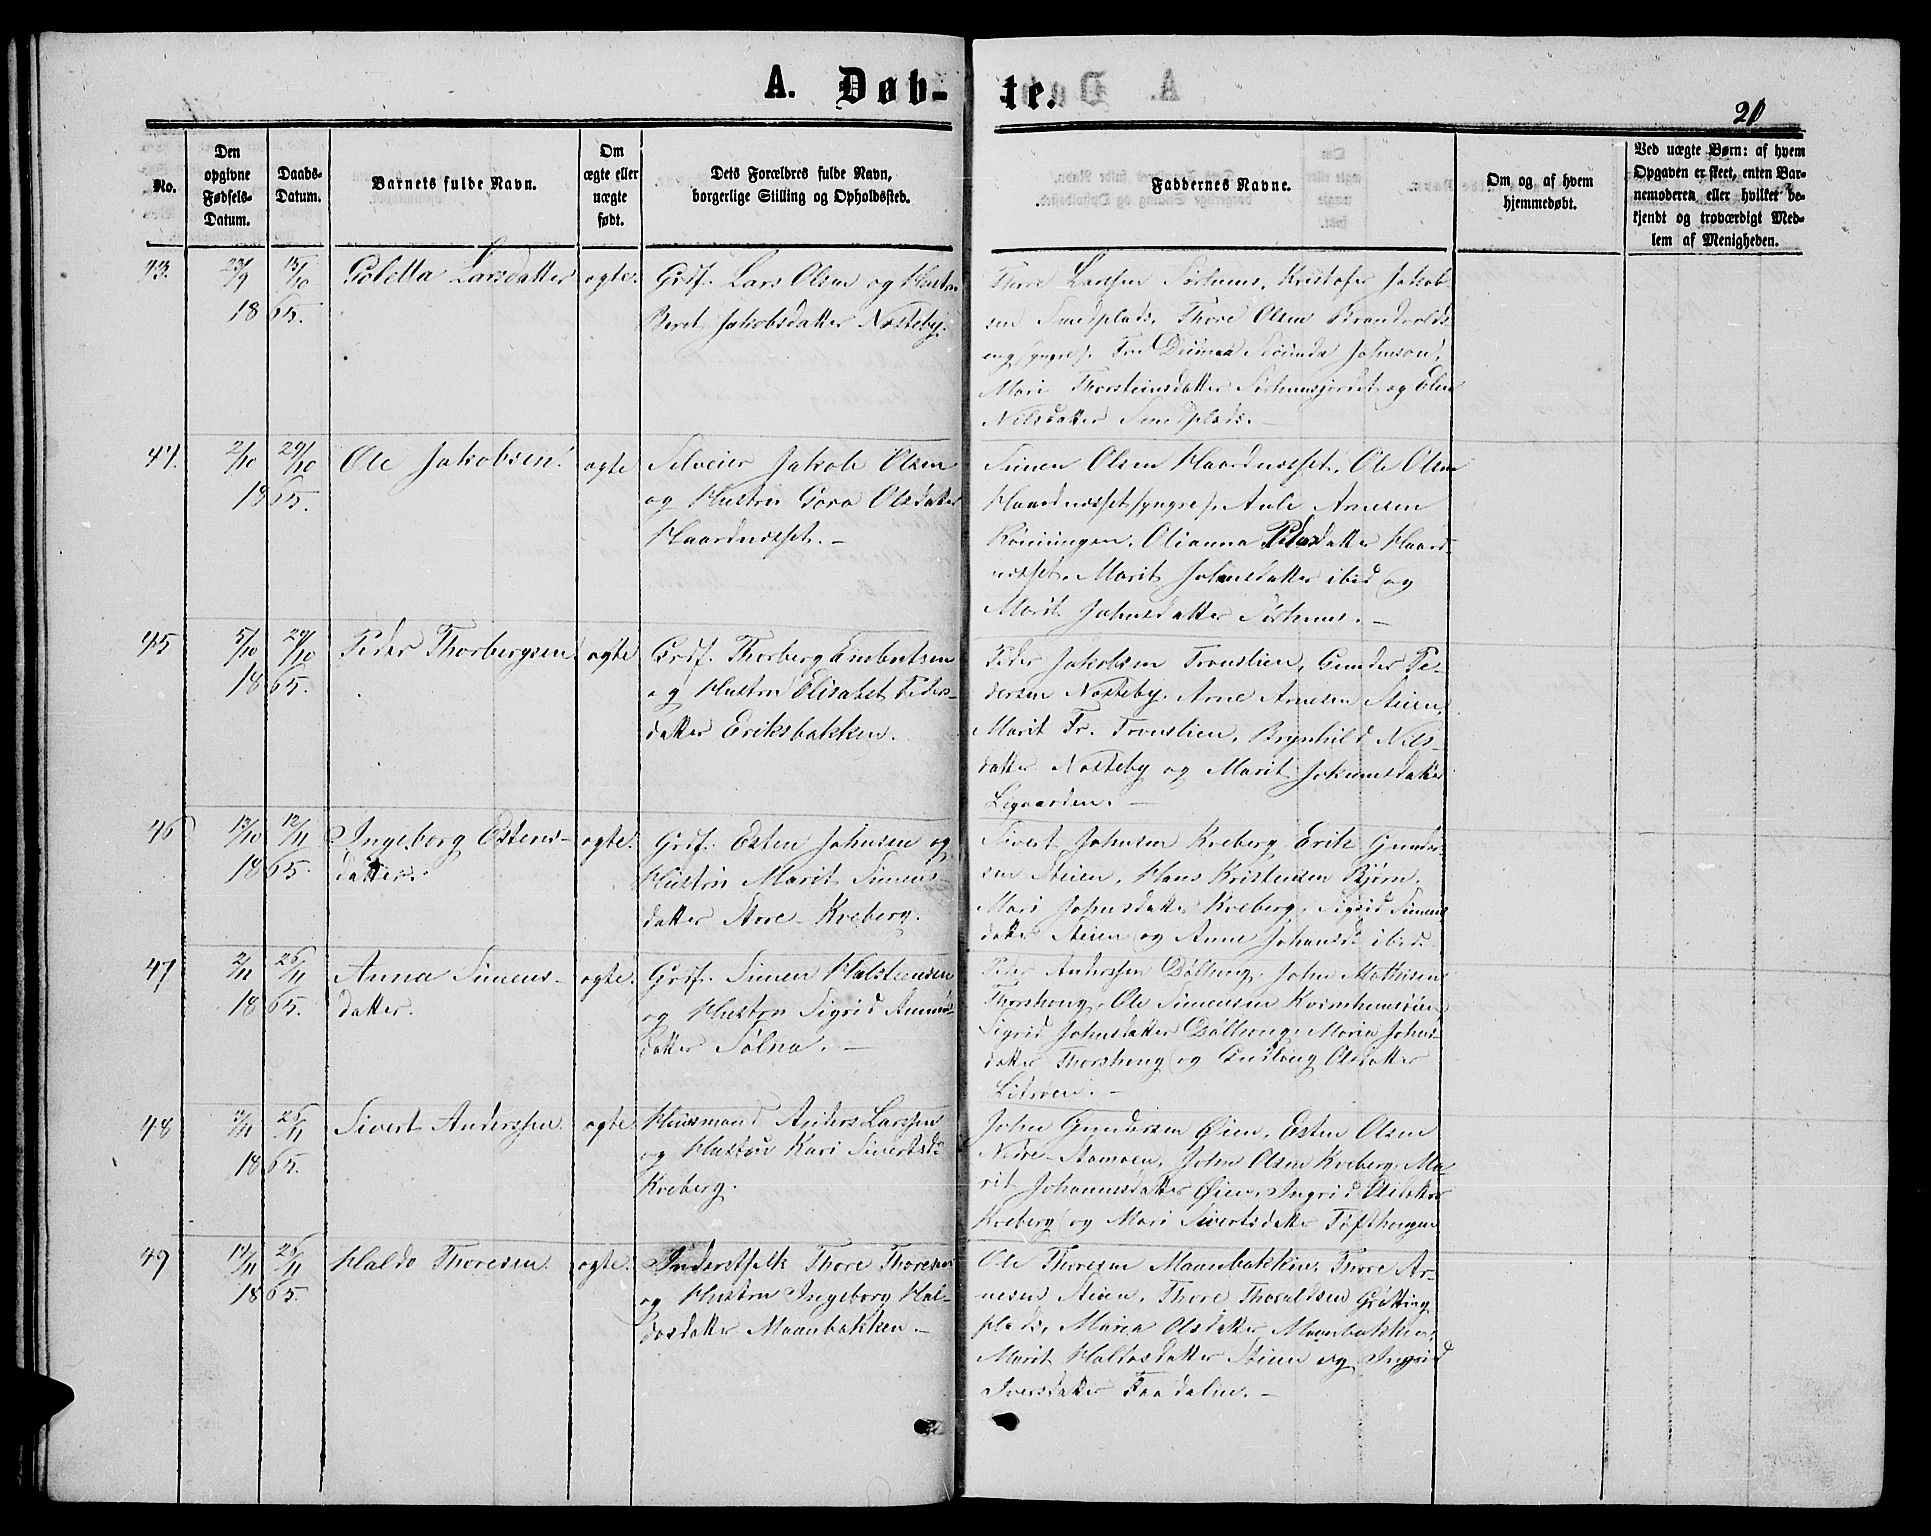 A. Døb-
te.
20
No.
Den
opgivne
Fødsels-
Datum.
Daabs-
Datum.
Barnets fulde Navn.
Om
ægte eller
uægte
født.
Dets Forældres fulde Navn,
borgerlige Stilling og Opholdssted.
Faddernes Navne.
Om og af hvem
hjemmedøbt.
Ved uægte Børn: af hvem
Opgaven er skeet, enten Bar-
nemoderen eller hvilket be-
kjendt og troværdigt Med-
lem af Menigheden.
43. 23/9 15/10 Goletta Larsdatter ægte. Grdf. Lars Olsen og Hustru
1865.
Beret Jakobsdatter Nosteby.
Thore Larssen Sørhuus, Kristofer Jakob-
sen Smedplads, Thore Olsen Brandvolds-
eng (yngre). Johnson,
Mari Thorsteinsdatter og Elen
Nilsdatter Smedplads.
44. 2/10 29/10 Ole Jakobsen. ægte Selveier Jakob Olsen
1865.
og Hustru Gora Olsdatter
Haardnæsset. –
Simen Olsen Haardnæsset, Ole Olsen
Haardnæsset (yngre). Arnesen
Rønningen, Olianna Pedersdatter Haard-
næsset, Marit Johnsdatter ibid og
Marit Johnsdatter Sørhuus. –
45 5/10 29/10 Peder Thorbergsen ægte Grdf. Thorberg Embretsen
1865.
og Hustru Elisabet Peders-
datter Eriksbakken.
Peder Jakobsen Tronslien, Gunder Pe-
dersen Nosteby, Arne Arnesen Steien,
Marit Fr. Tronslien, Brynhild Nils-
datter Nosteby og Marit Johannesdatter
Ligaarden. –
46 13/10 12/11 Ingeborg Estens-
datter.
1865.
ægte. Grdf. Esten Johnsen og
Hustru Marit Simens-
datter Store-Kveberg.
Sivert Johnsen Kveberg, Erik Gunder-
sen Steien, Hans Kristensen Bjørn,
Mari Johnsdatter Kveberg, Sigrid Simens-
datter Steien og Anne Johansd. ibid.
47 2/11 26/11 Anna Simens-
datter.
1865.
ægte. Grdf. Simen Halsteensen
og Hustru Sigrid
datter Sølna. –
Peder Anderssen Døllung, John Mathisen
Thorshoug, Ole Simensen
Sigrid Johnsdatter Døllung, Maria Johns-
datter Thorshoug og Olsdatter
48 26/11 Sivert Anderssen ægte Huusmand Anders Larssen
1865.
og Hustru Kari Sivertsd.
Kveberg.
John Gundersen Øien, Esten Olsen
Nedre-Stamoen, John Olsen Kveberg, Ma-
rit Johannesdatter Øien, Ingrid Olsdatter
Kveberg og Mari Sivertsdatter
49 14/11 26/11 Haldo Thoresen. ægte. Inderstfolk Thore Thoresen
1865.
og Hustru Ingeborg Hal-
dosdatter Maanbakken –
Ole Thoresen Maanbakken, Thore Ar-
nesen Steien, Thore Thoraldsen Grøtting-
plads, Maria Olsdatter Maanbakken,
Marit Haldosdatter Steien og Ingrid
Iversdatter Faadalen. –